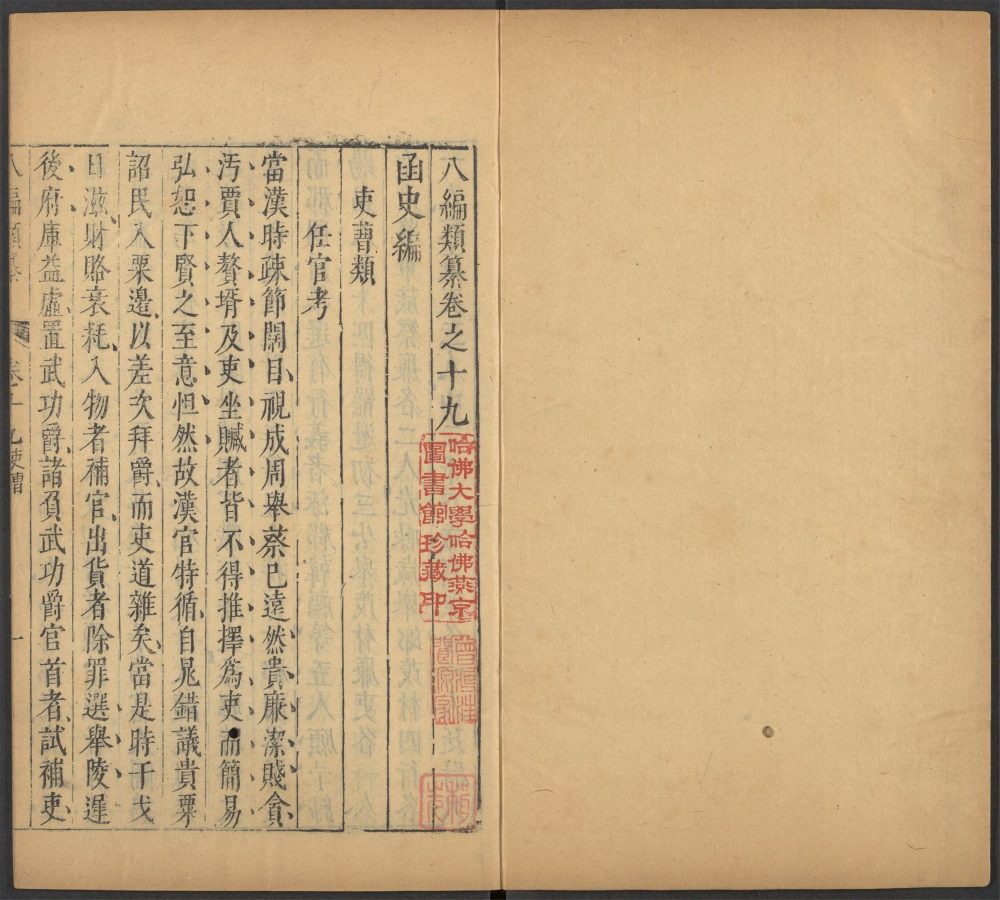 八編類纂卷之十九
函史編
吏曹類
任官考
當漢時疎節闊目視成周舉蔡已遠然貴廉潔賤貪
汚賈人贅壻及吏坐贓者皆不得推擇爲吏而簡易
弘恕下賢之至意怛然故漢官特循自晁錯議貴粟
詔民入粟邊以差次拜爵而吏道雜矣當是時干戈
日滋財賂衰耗入物者補官出貨者除罪選舉陵遲
後府庫益虛置武功爵諸負武功爵官首者試補吏
八編類纂
卷十九吏曹
一
哈佛大學哈佛燕京
圖書館珍藏印